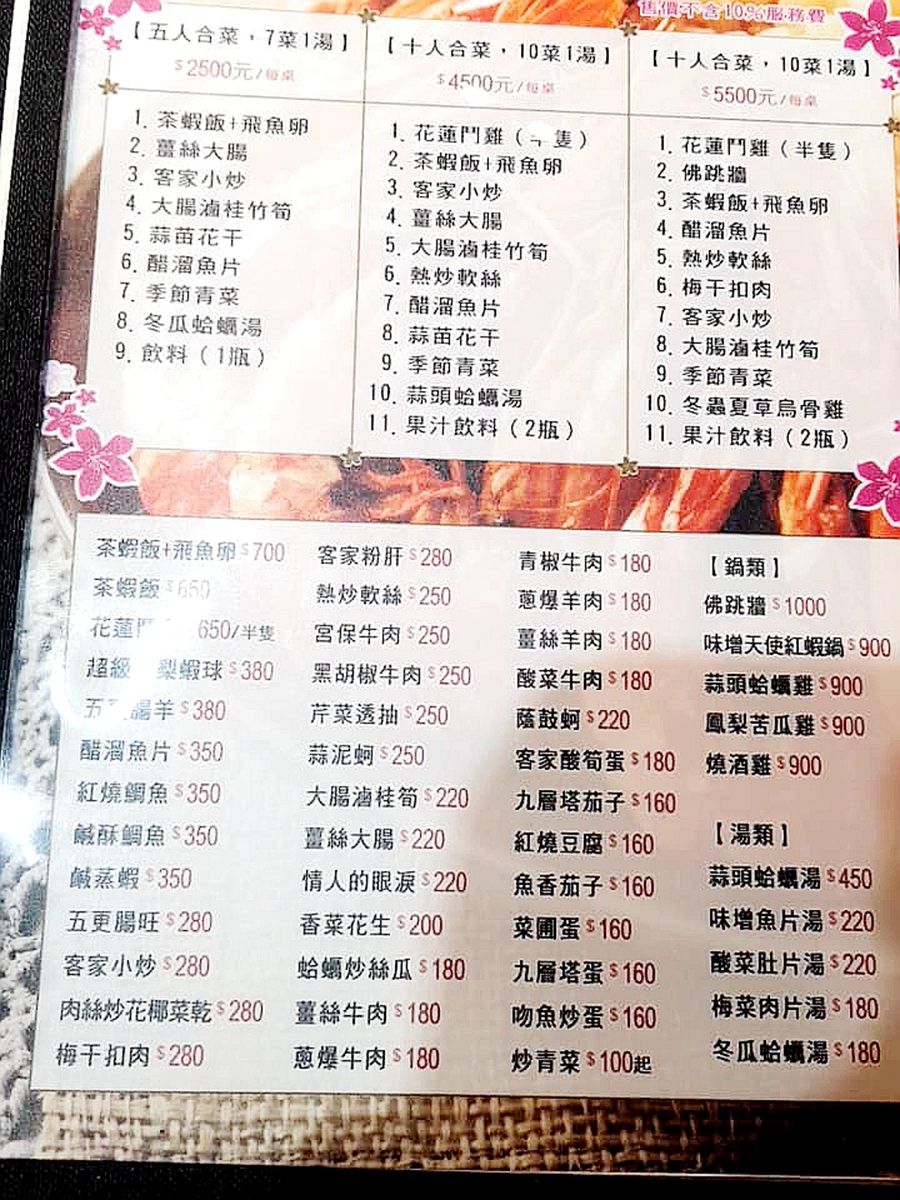 售價不含10%服務費
【五人合菜，7菜1湯】
$2500元/每桌
1. 茶蝦飯+飛魚卵
2. 薑絲大腸
3. 客家小炒
4. 大腸滷桂竹筍
5. 蒜苗花干
6. 醋溜魚片
7. 季節青菜
8. 冬瓜蛤蠣湯
9. 飲料（1瓶）
【十人合菜，10菜1湯】
$4500元/每桌
1. 花蓮鬥雞（ 隻）
2. 茶蝦飯+飛魚卵
3. 客家小炒
4. 薑絲大腸
5. 大腸滷桂竹筍
6. 熱炒軟絲
7. 醋溜魚片
8. 蒜苗花干
9. 季節青菜
10. 蒜頭蛤蠣湯
11. 果汁飲料（2瓶）
【十人合菜，10菜1湯】
$5500元/每桌
1. 花蓮鬥雞（半隻）
2. 佛跳牆
3. 茶蝦飯+飛魚卵
4. 醋溜魚片
5. 熱炒軟絲
6. 梅干扣肉
7. 客家小炒
8. 大腸滷桂竹筍
9. 季節青菜
10. 冬蟲夏草烏骨雞
11. 果汁飲料（2瓶）
茶蝦飯+飛魚卵 $700
茶蝦飯 $650
花蓮 650/半隻
超級 梨蝦球 $380
五 腸羊 $380
醋溜魚片 $350
紅燒鯛魚 $350
鹹酥鯛魚 $350
鹹蒸蝦 $350
五更腸旺 $280
客家小炒 $280
肉絲炒花椰菜乾 $280
梅干扣肉 $280
客家粉肝 $280
熱炒軟絲 $250
宮保牛肉 $250
黑胡椒牛肉 $250
芹菜透抽 $250
蒜泥蚵 $250
大腸滷桂筍 $220
薑絲大腸 $220
情人的眼淚 $220
香菜花生 $200
蛤蠣炒絲瓜 $180
薑絲牛肉 $180
蔥爆牛肉 $180
青椒牛肉 $180
蔥爆羊肉 $180
薑絲羊肉 $180
酸菜牛肉 $180
蔭鼓蚵 $220
客家酸筍蛋 $180
九層塔茄子 $160
紅燒豆腐 $160
魚香茄子 $160
菜圃蛋 $160
九層塔蛋 $160
吻魚炒蛋 $160
炒青菜 $100起
【鍋類】
佛跳牆 $1000
味增天使紅蝦鍋 $900
蒜頭蛤蠣雞 $900
鳳梨苦瓜雞 $900
燒酒雞 $900
【湯類】
蒜頭蛤蠣湯 $450
味增魚片湯 $220
酸菜肚片湯 $220
梅菜肉片湯 $180
冬瓜蛤蠣湯 $180